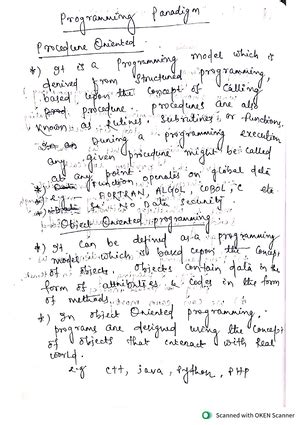 Programming Paradigm
Procedure Oriented
*) It is a Programming model which is
derived from structured programming,
based upon the concept of calling
procedure. procedures are also
known as routines, subroutines, or functions.
During a programming execution
any given procedure might be called
at any point.
*) function operates on global data
*) e.g. FORTRAN, ALGOL, COBOL, C etc
*) NO Data Security.
Object Oriented programming
*) It can be defined as a programming
model which is based upon the concept
of objects. Objects contain data in the
form of attributes & codes in the form
of methods.
*) In Object Oriented Programming,
programs are designed using the concept
of objects that interact with real
world.
e.g C++, java, Python, PHP
Scanned with OKEN Scanner